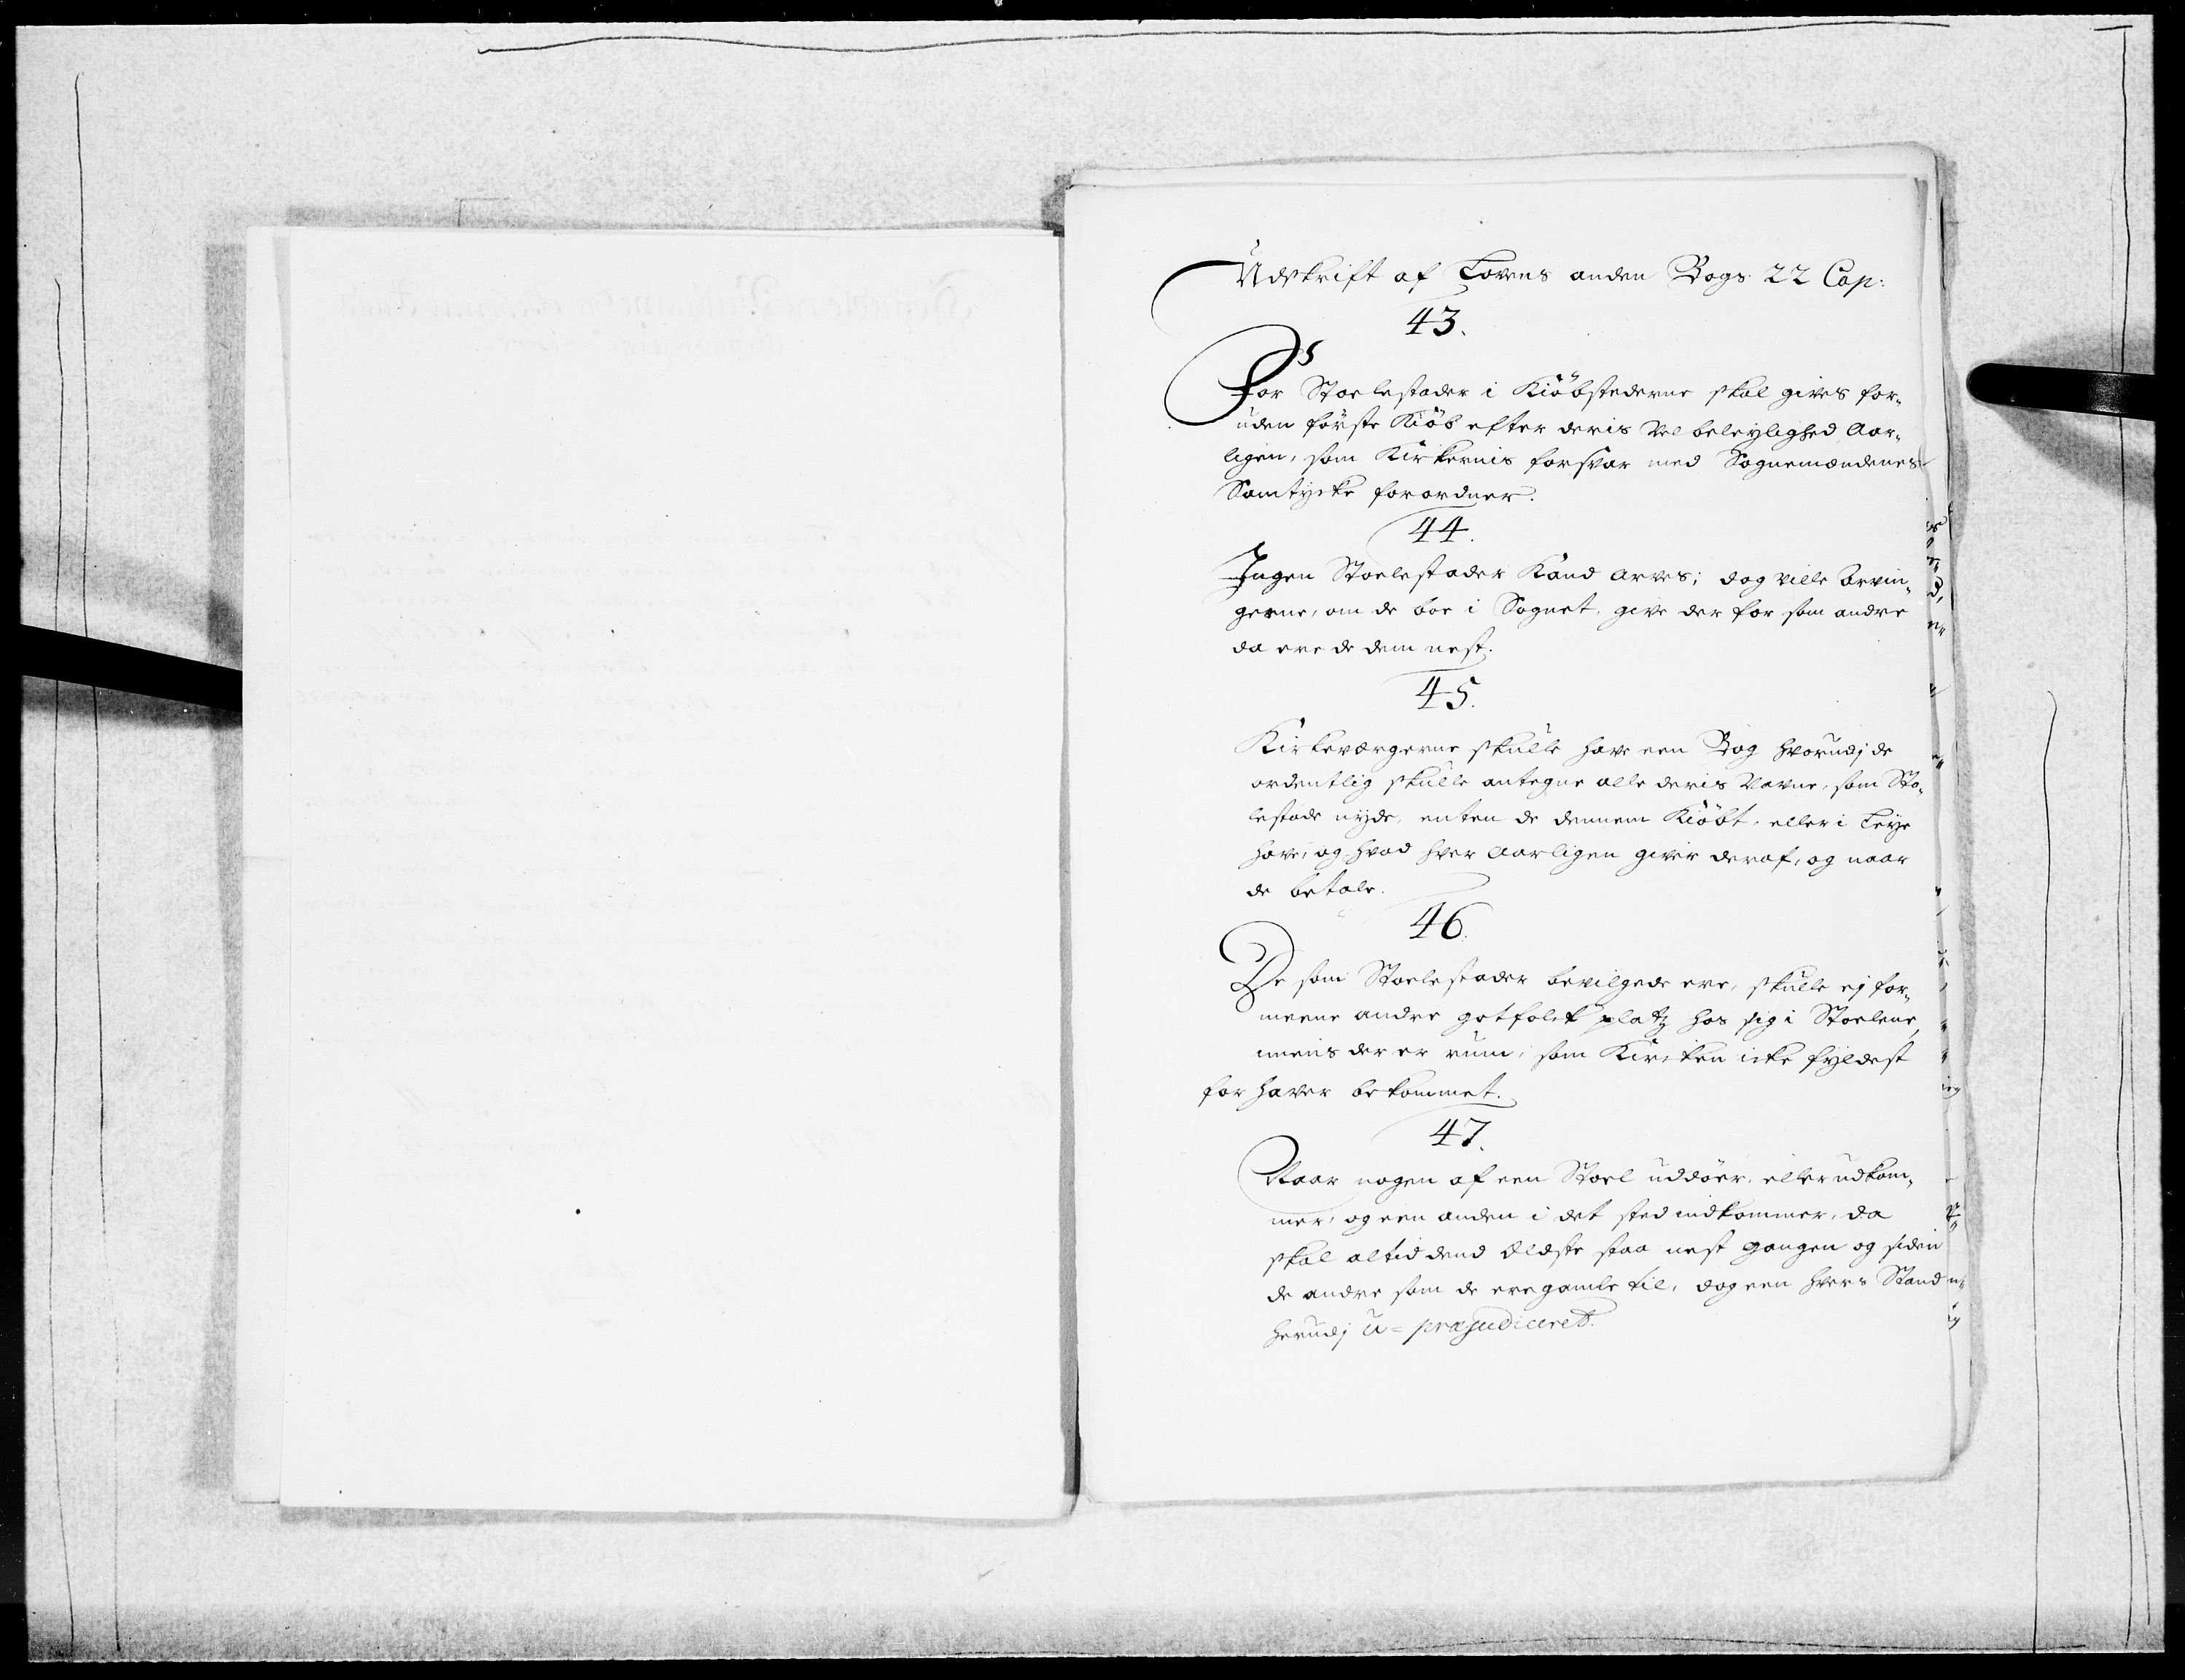 Udskrift af Lovens anden Bogs 22 Cap:
43.
For Stoelestader i Kiöbstederne skal gives for„
uden förste Kiöb efter deris Vel beleylighed Aar„
ligen, som Kirkernis forsvar med Sognemændenes
Samtycke forordner.
44.
Ingen Stoelestader Kand arves; dog ville Arvin„
gerne, om de boe i Sognet, give der for som andre
da ere de dem nest.
45.
Kirkeværgerne skulle have een Bog hvorudj de
ordentlig skulle antegne alle deris Navne, som Sto„
lestade nyde, enten de dennem Kiöbt, eller i Leye
have, og hvad hver Aarligen giver deraf, og naar
de betale.
46.
De som Stoelestader bevilgede ere, skulle ej for„
meene andre gotfolck platz hos sig i Stoelene,
imens der er rum, som Kircken icke fyldest
for haver bekommet.
47.
Naar nogen af een Stoel uddöer, eller udkom„
mer, og een anden i det sted indkommer, da
skal altid dend Eldste staa nest gangen og siden
de andre som de ere gamle til, dog een hvers Stand
herudj u=præjudiceret.